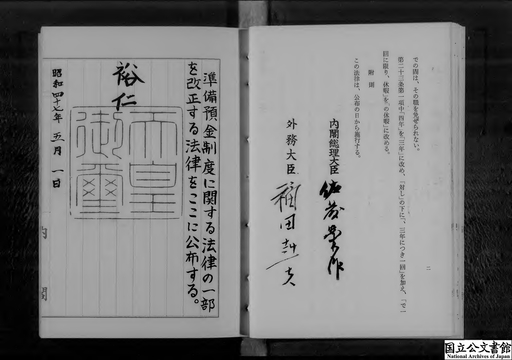 での間は、その職を免ぜられない。
第二十三条第一項中「四年」を「三年」に改め、「対し」の下に「、三年につき一回」を加え、「で一
回に限り、休暇」を「の休暇」に改める。
附則
この法律は、公布の日から施行する。
内閣総理大臣 佐藤榮作
外務大臣 福田赳夫
二
準備預金制度に関する法律の一部
を改正する法律をここに公布する。
裕仁
天皇
御璽
昭和四十七年 五月 一日
国立公文書館
National Archives of Japan